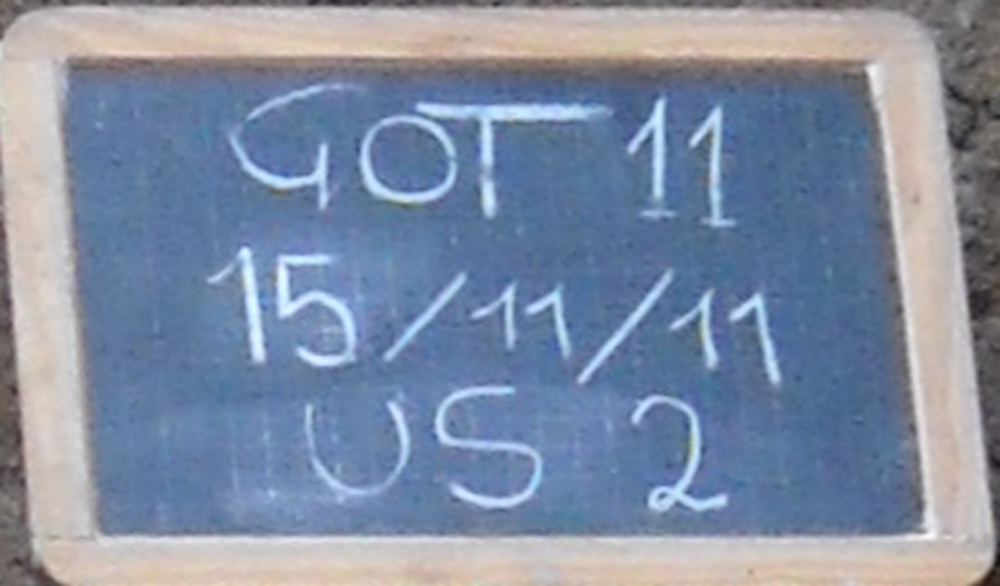 GOT 11
15/11/11
US 2